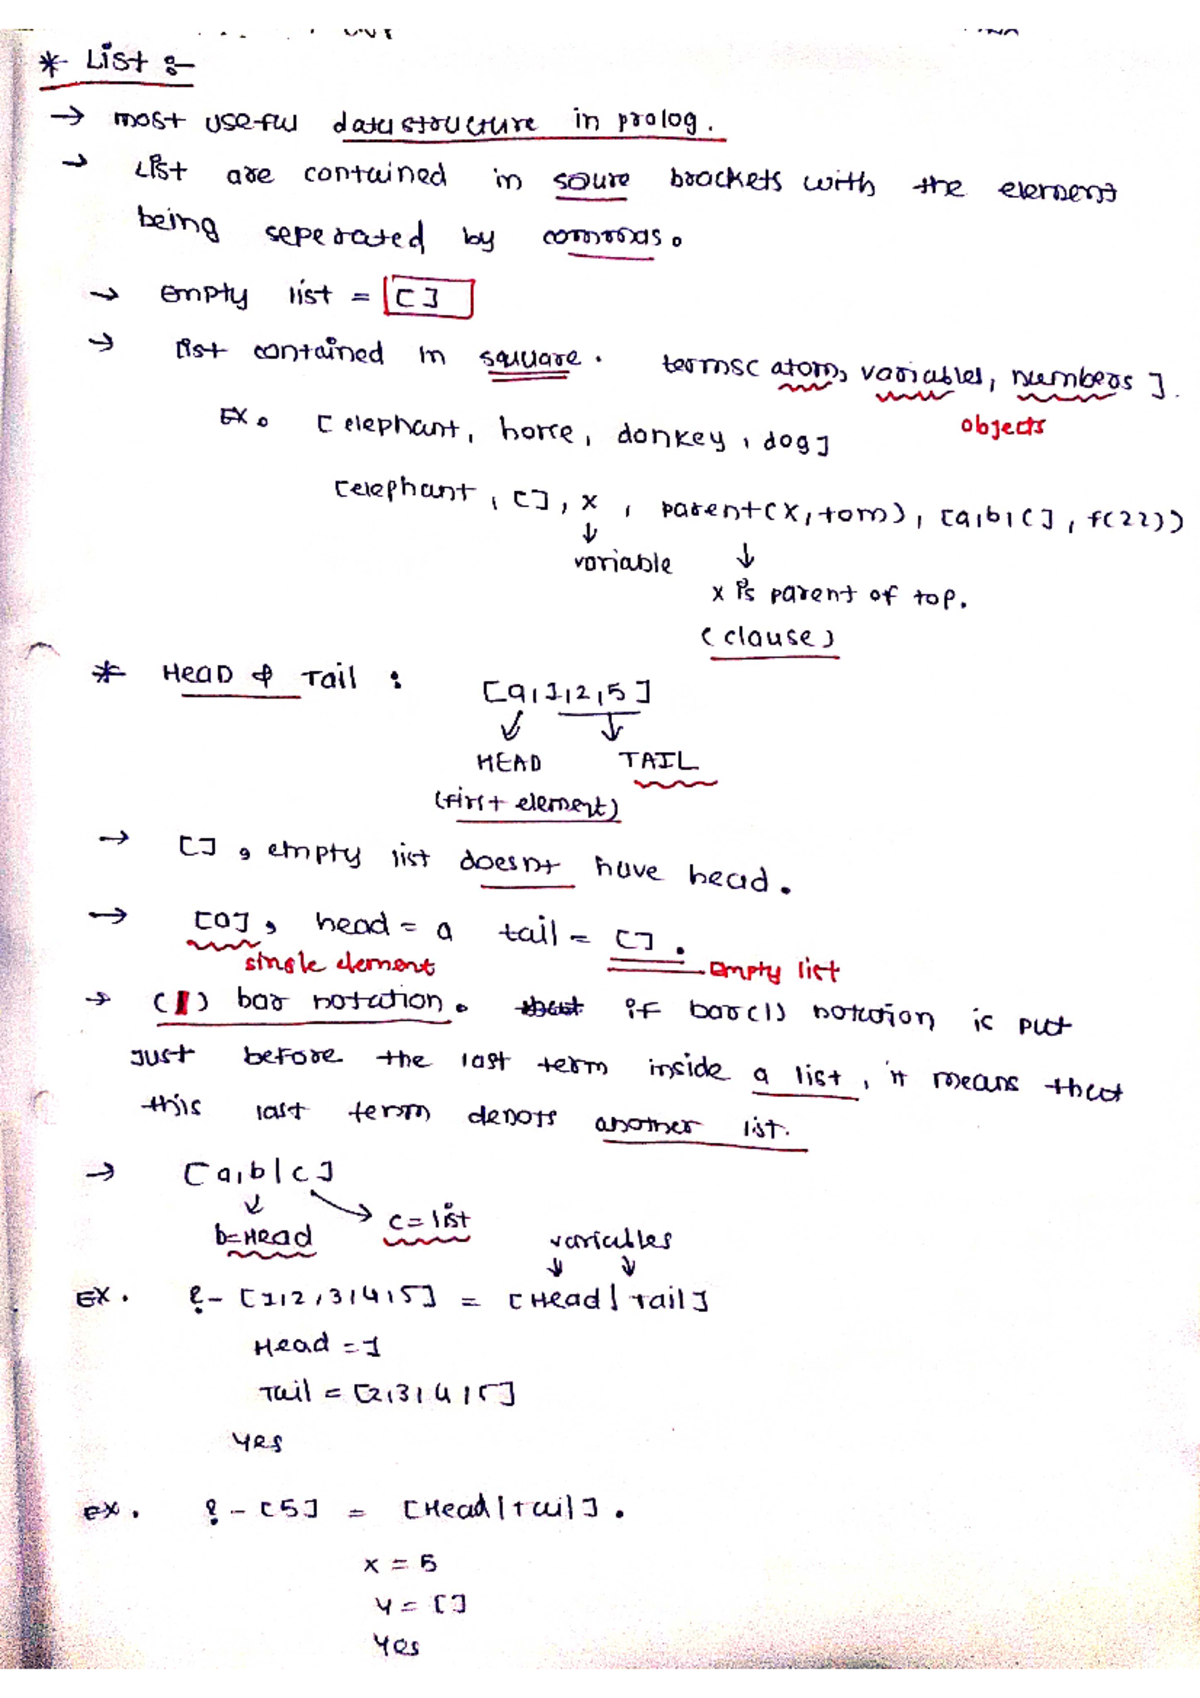 * List :-
→ most useful datastructure in prolog.
→ List are contained in soure brackets with the element
being seperated by commas.
→ Empty list = []
→ list contained in squuare. terms( atom, variables, numbers ].
objects
Ex. [elephant, horse, donkey, dog]
[elephant, [], x, parent(x, tom), [a,b,[], f(22)))
variable
x is parent of top.
(clause)
* HEAD & Tail :
[a,1,2,5]
HEAD TAIL
(first element)
→ [], empty list doesnt have head.
→ [a], head = a tail = [].
single element empty list
→ (|) bar notation. if bar(|) notation is put
Just before the last term inside a list, it means that
this last term denots another list.
→ [a,b|c]
b=Head c=list
variables
Ex. ?- [1,2,3,4,5] = [Head|Tail]
Head = 1
Tail = [2,3,4,5]
Yes
ex. ?- [5] = [Head|Tail].
x = 5
y = []
Yes